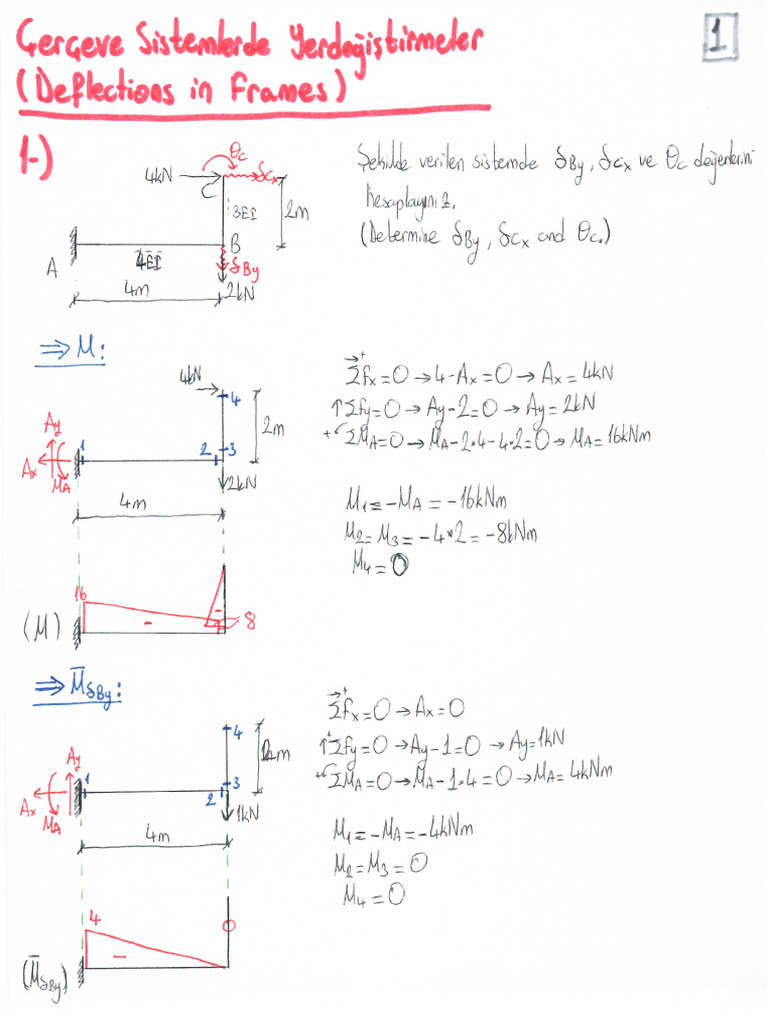 Çerçeve Sistemlerde Yerdeğiştirmeler
(Deflections in Frames)
1
1-)
Şekilde verilen sistemde δBy, δCx ve θC değerlerini
hesaplayınız.
(Determine δBy, δCx and θC.)
θC
4kN
δCx
C
3EI
2m
B
A
4EI
δBy
4m
2kN
⇒ M:
4kN
4
2m
Ay
1
2
3
Ax
MA
2kN
4m
→+ ΣFx=0 → 4-Ax=0 → Ax=4kN
↑ΣFy=0 → Ay-2=0 → Ay=2kN
+↶ΣMA=0 → MA-2*4-4*2=0 → MA=16kNm
M1=-MA=-16kNm
M2=M3=-4*2=-8kNm
M4=0
16
-
-
8
(M)
⇒ M̄δBy:
4
2m
Ay
1
2
3
Ax
MA
1kN
4m
→+ ΣFx=0 → Ax=0
↑+ΣFy=0 → Ay-1=0 → Ay=1kN
+↶ΣMA=0 → MA-1*4=0 → MA=4kNm
M1=-MA=-4kNm
M2=M3=0
M4=0
4
-
0
(M̄δBy)